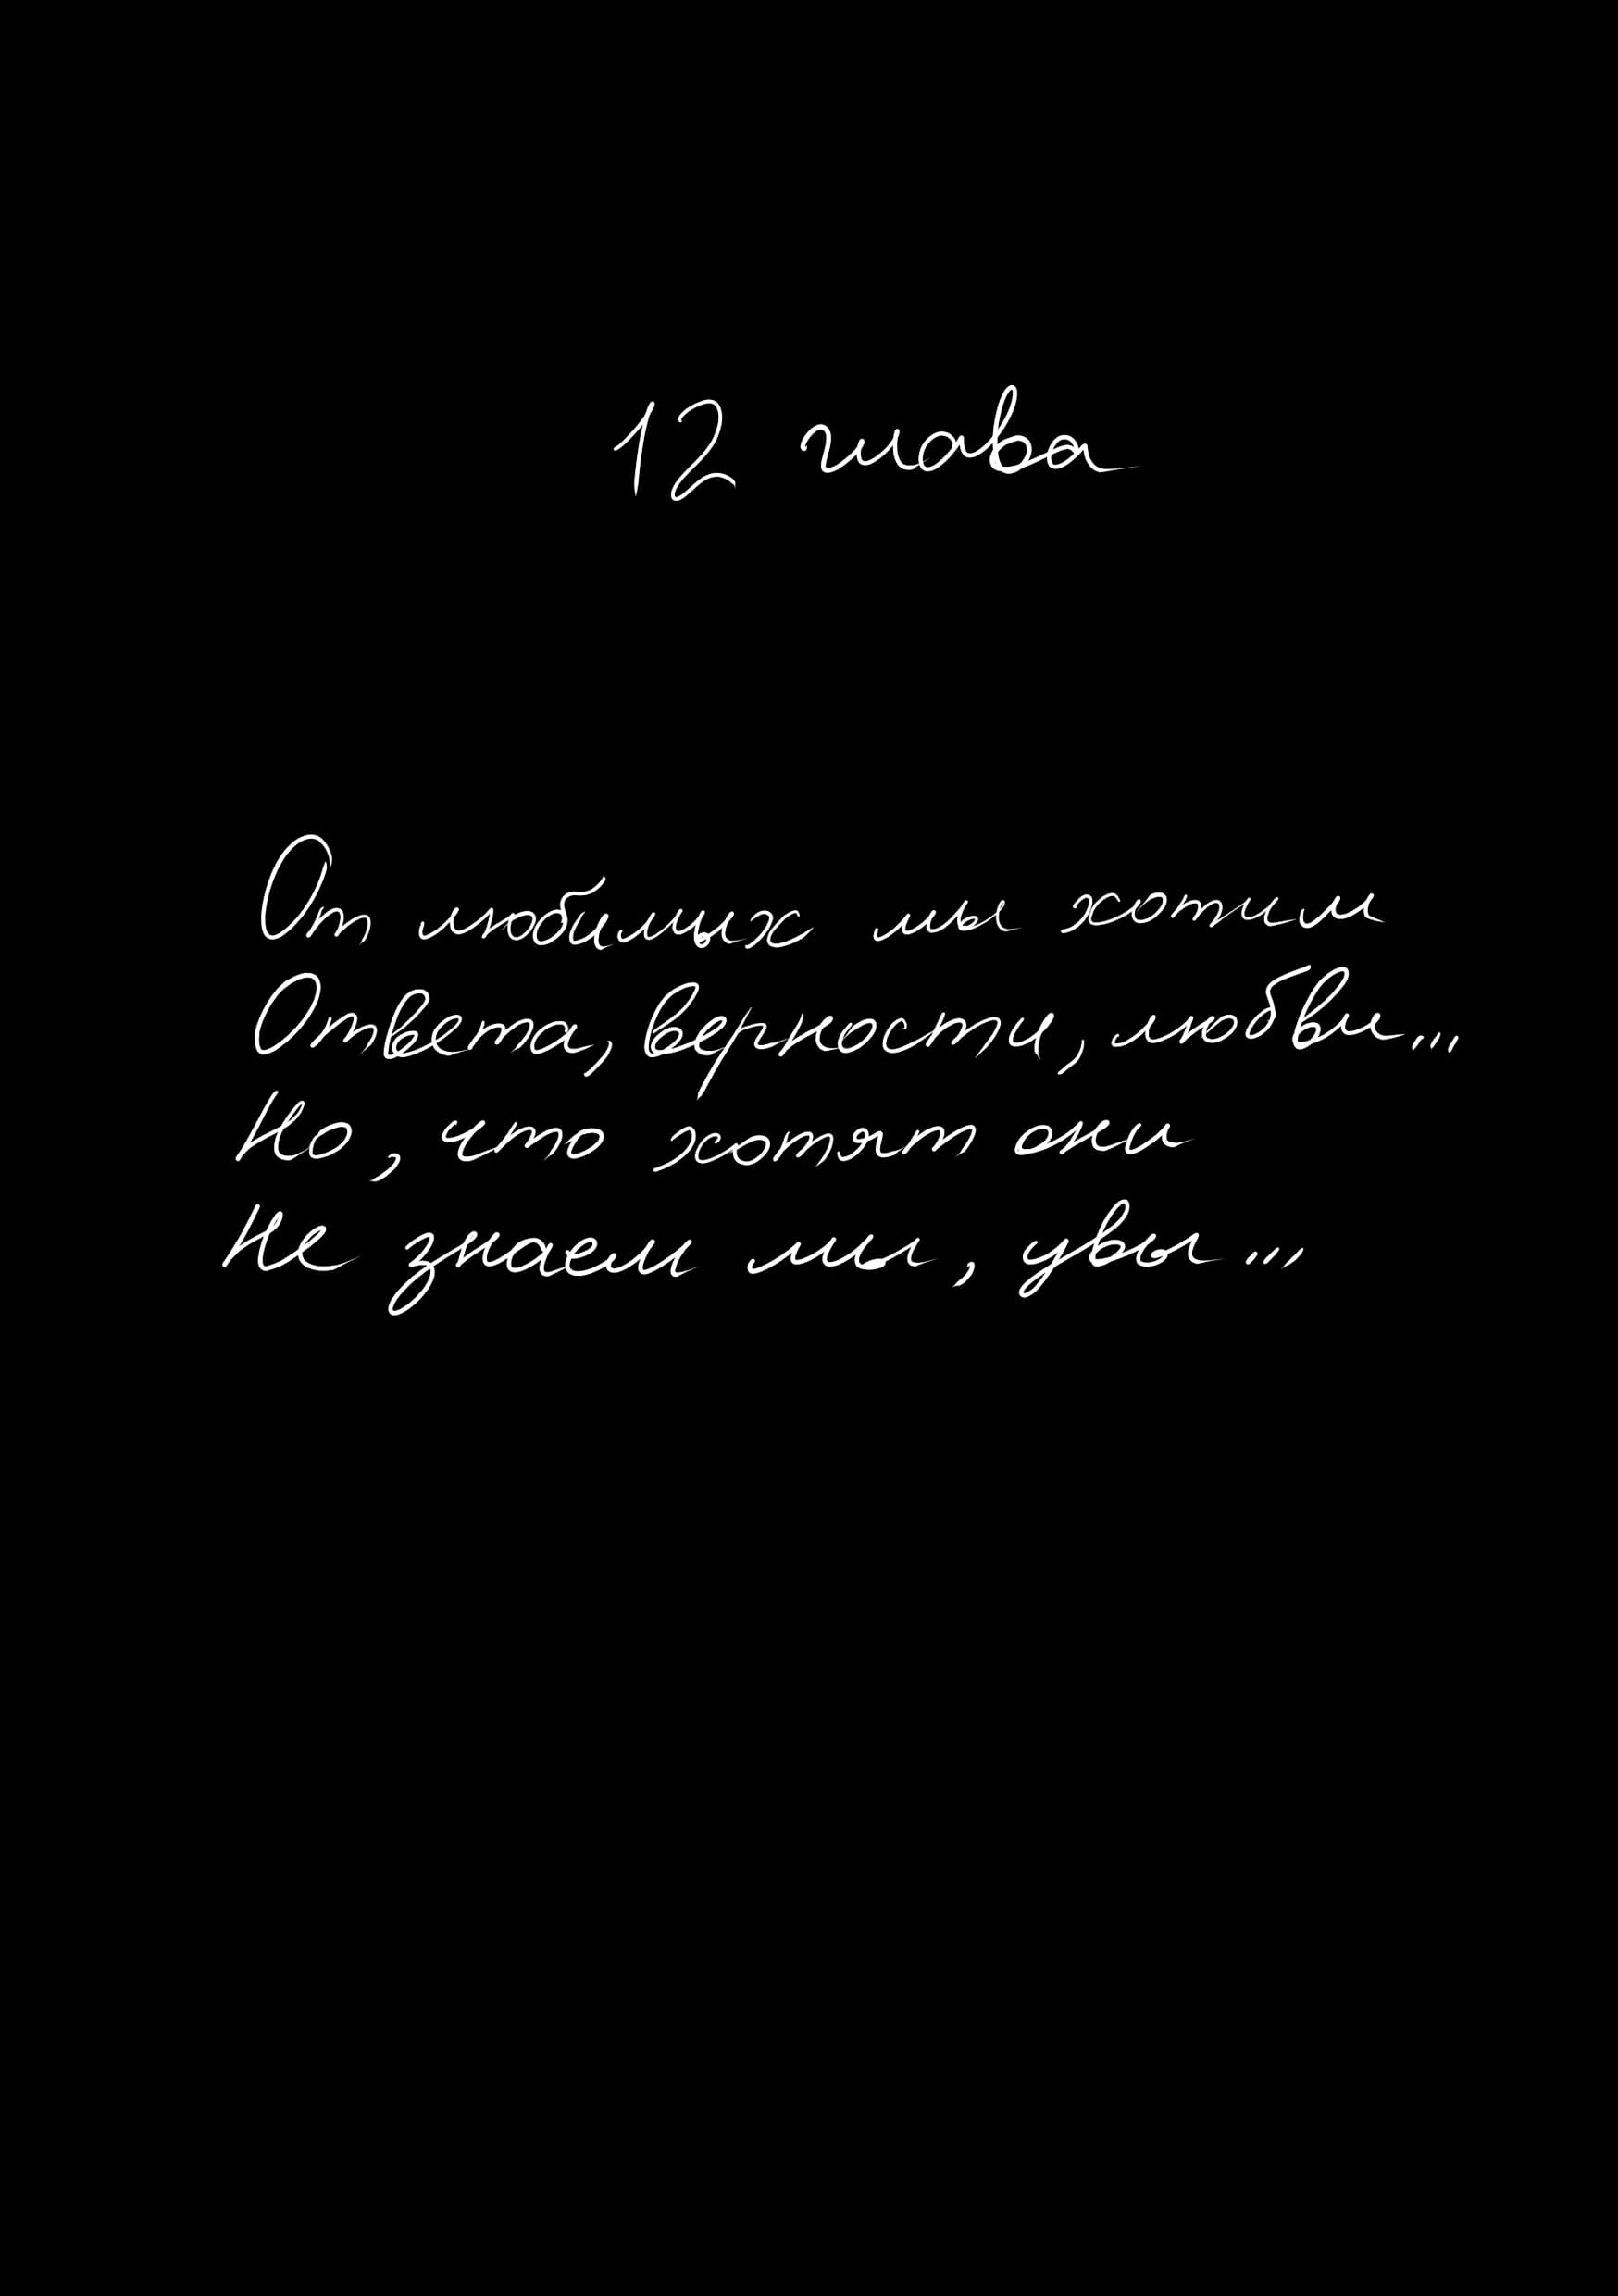 12 глава
От любимых мы хотим
Ответа, верности, любви...
Но, что хотят они
Не знаем мы, увы...